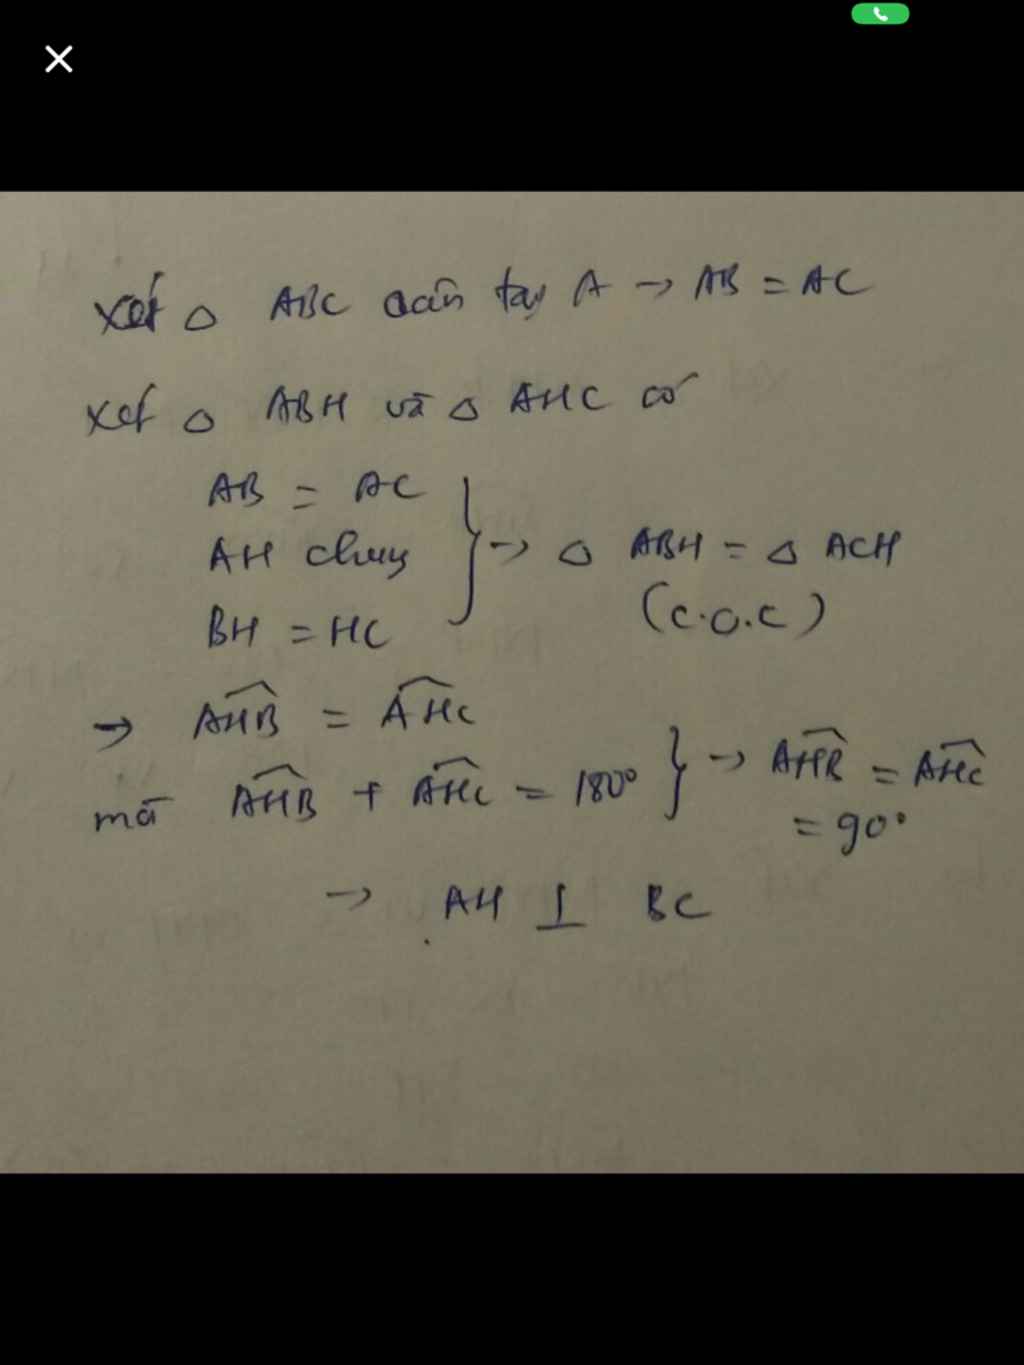 Xét △ ABC cân tại A → AB = AC
Xét △ ABH và △ AHC có
AB = AC
AH chung
BH = HC
} → △ ABH = △ ACH
(c.c.c)
→ \widehat{AHB} = \widehat{AHC}
mà \widehat{AHB} + \widehat{AHC} = 180° } → \widehat{AHB} = \widehat{AHC}
= 90°
→ AH ⊥ BC